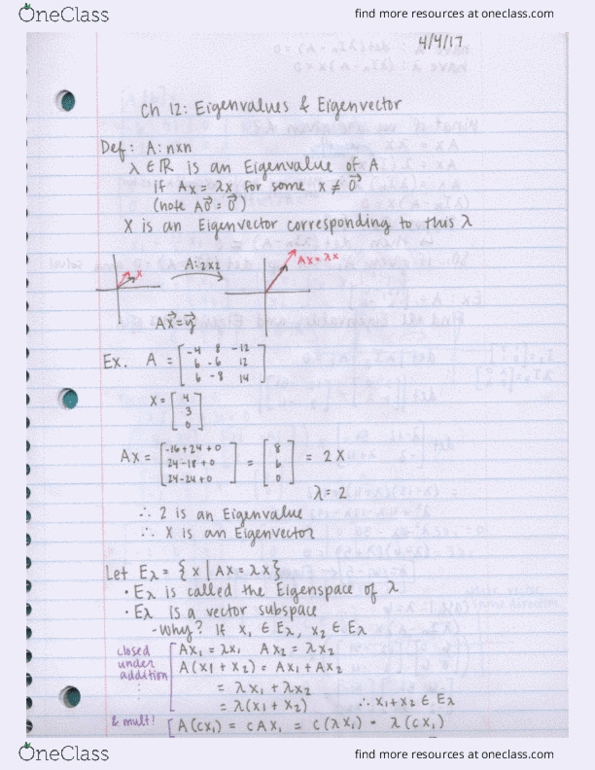 OneClass
find more resources at oneclass.com
4/4/17
Ch 12: Eigenvalues & Eigenvector
Def: A: nxn
λ ∈ ℝ is an Eigenvalue of A
if Ax = λx for some x ≠ 0⃗
(note A0⃗ = 0⃗)
X is an Eigenvector corresponding to this λ
x
A: 2x2
Ax = λx
Ax⃗ = y⃗
Ex. A = [-4 8 -12
6 -6 12
6 -8 14]
X = [4
3
0]
AX = [-16+24+0
24-18+0
24-24+0] = [8
6
0] = 2X
λ = 2
∴ 2 is an Eigenvalue
∴ X is an Eigenvector
Let Eλ = {x | Ax = λx}
• Eλ is called the Eigenspace of λ
• Eλ is a vector subspace
-Why? If x₁ ∈ Eλ, x₂ ∈ Eλ
closed under addition
Ax₁ = λx₁ Ax₂ = λx₂
A(x1 + x2) = Ax1 + Ax2
= λx₁ + λx₂
= λ(x₁ + x₂) ∴ x₁+x₂ ∈ Eλ
& mult!
A(cx₁) = cAx₁ = c(λx₁) = λ(cx₁)
OneClass
find more resources at oneclass.com